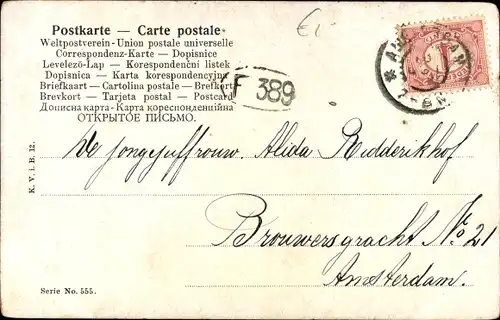 Postkarte — Carte postale
Weltpostverein - Union postale universelle
Correspondenz-Karte — Dopisnice
Levelező-Lap — Korespondenční listek
Dopisnica — Karta korespondencyjna
Briefkaart — Cartolina postale — Brefkort
Brevkort — Tarjeta postal — Postcard
Дописна карта - Карта кореспонденційна
ОТКРЫТОЕ ПИСЬМО.
F 389
1
De Jongejuffrouw. Alida Ridderikhof
Brouwersgracht No. 21
Amsterdam.
K. V. i. B. 12.
Serie No. 555.